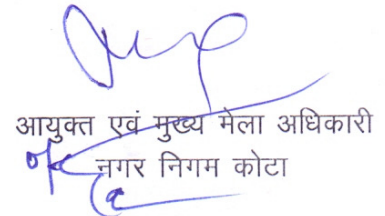 आयुक्त एवं मुख्य मेला अधिकारी
नगर निगम कोटा